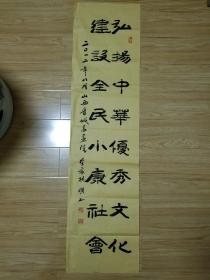 弘揚中華優秀文化
建設全民小康社會
二〇一二年八月山西晉城